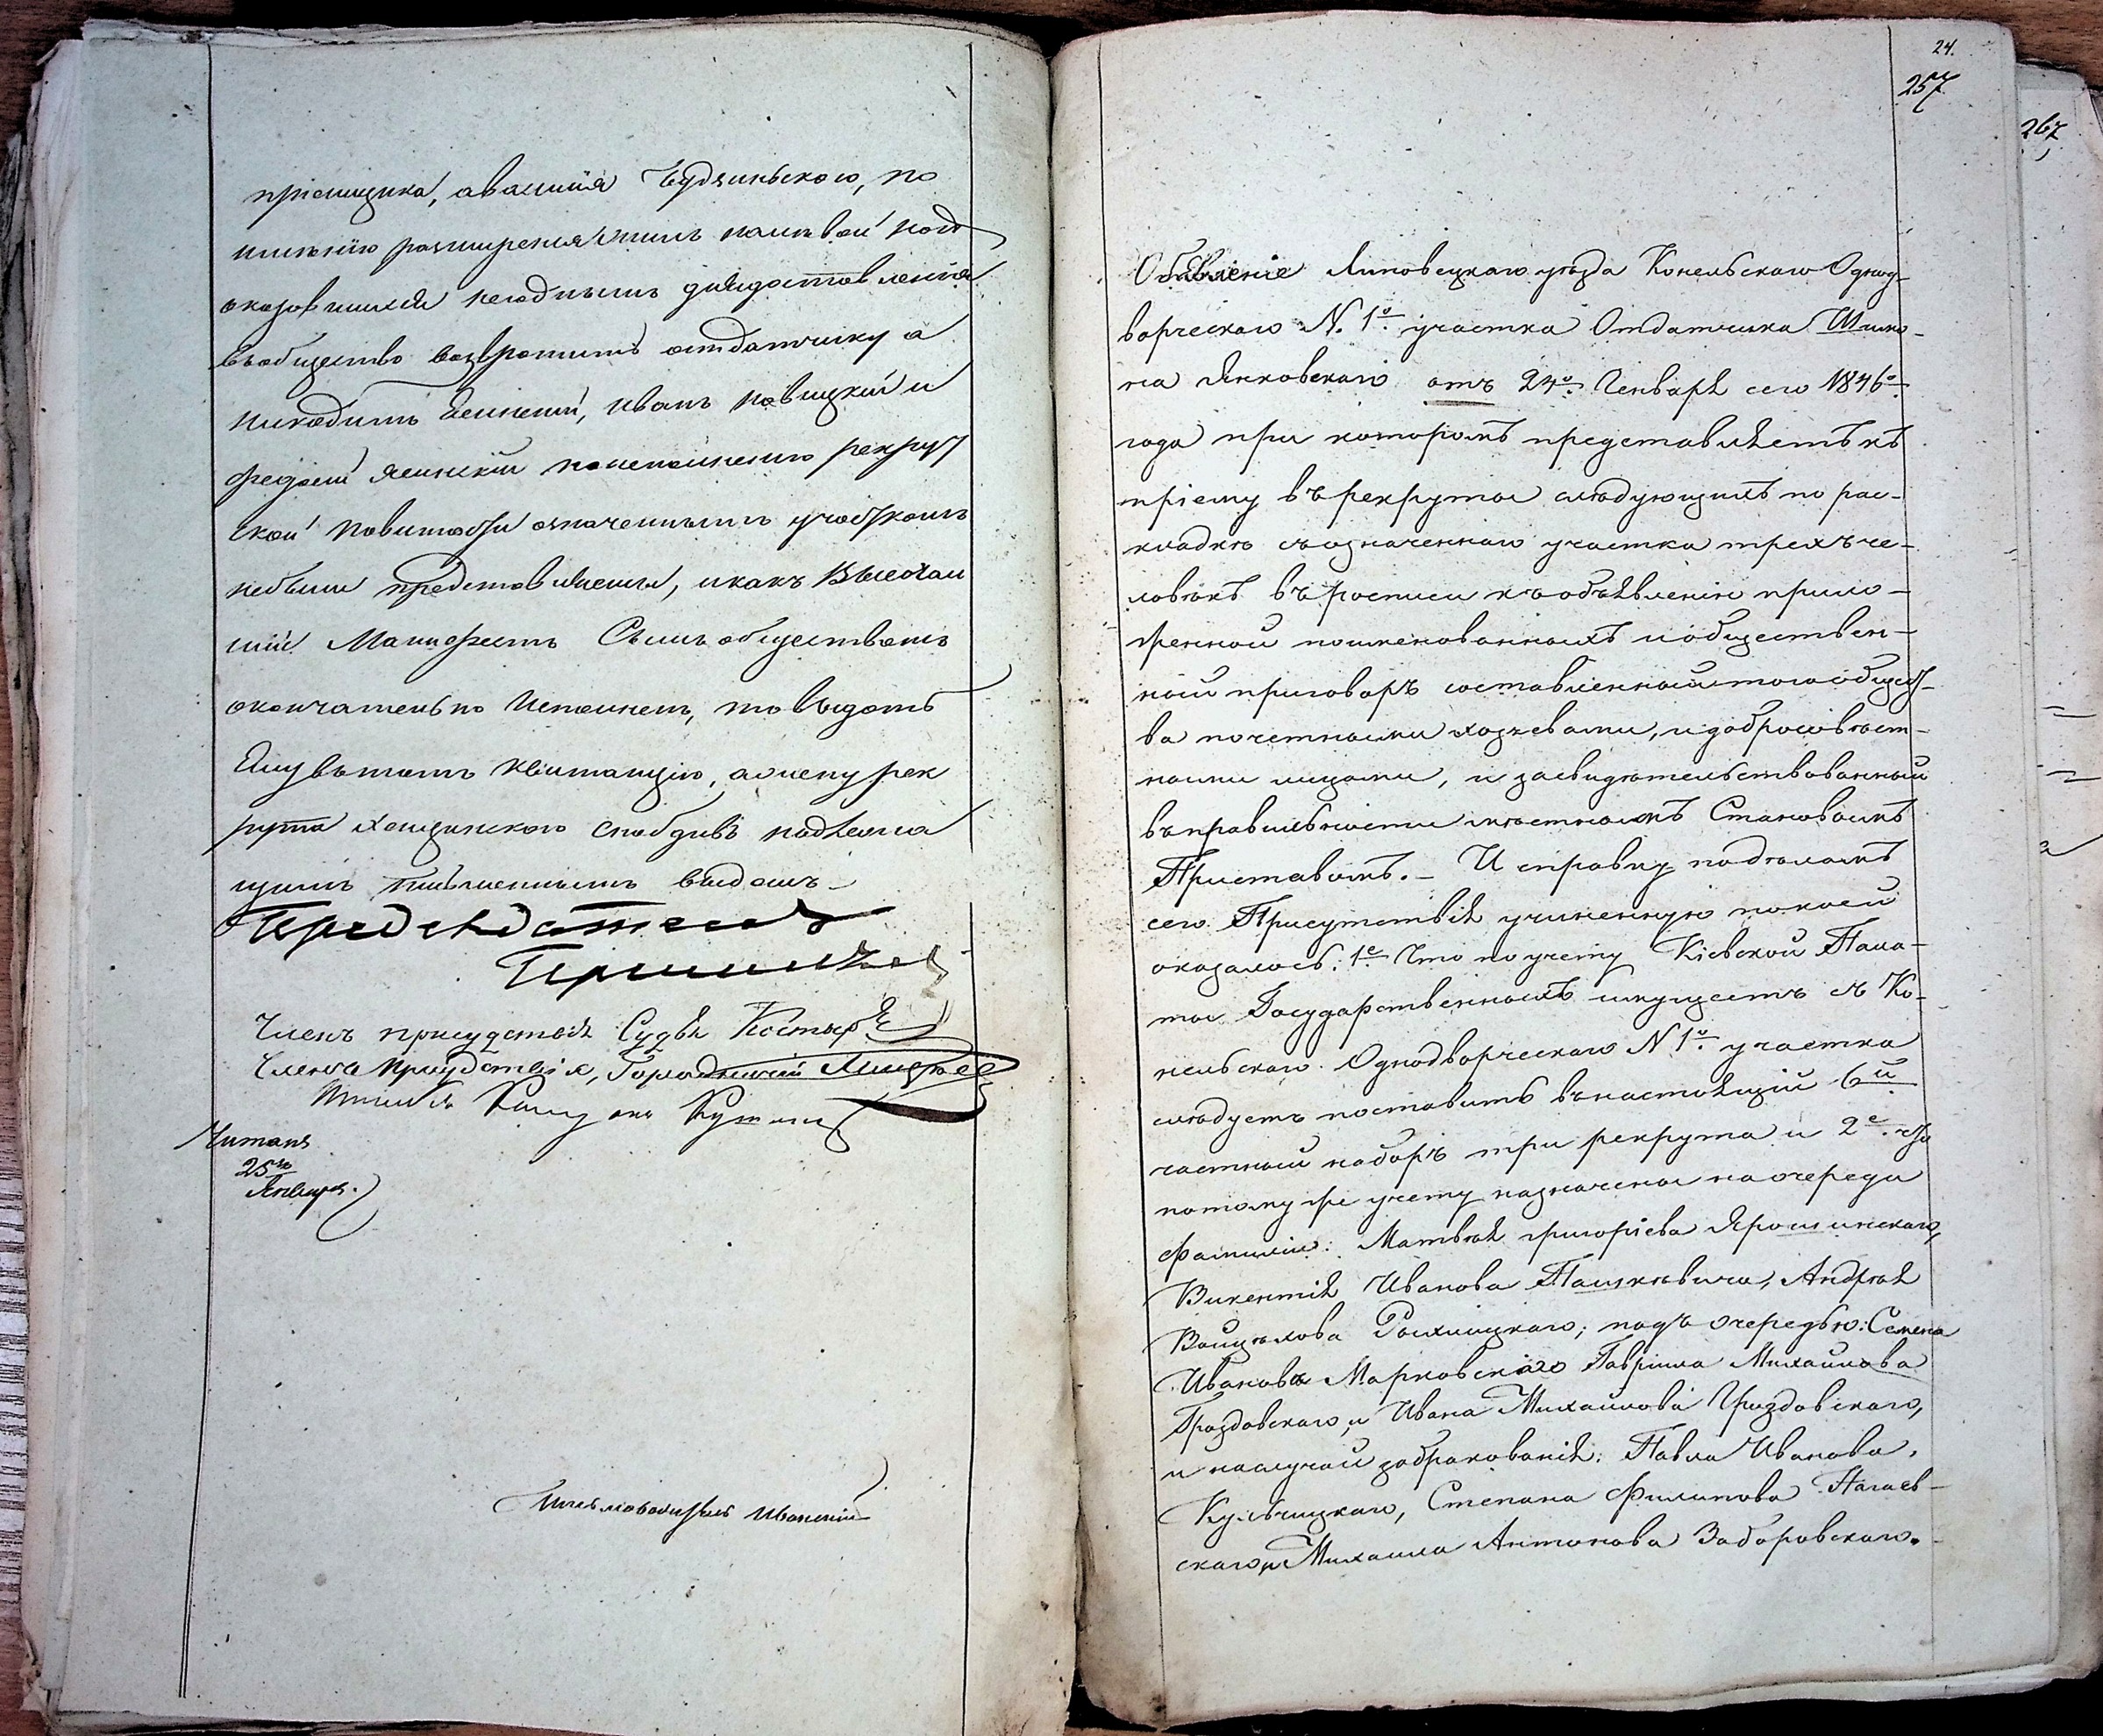 пріемщика, а Василія Будзинскаго, по
имѣнію расширенія жилъ паховой
оказавшимся негоднымъ
въ общество возвратить отдатчику а
никодимъ Ясинскій, иванъ новицкій и
Ясинскій по неполненію рекрут
ской повинности означеннымъ участкомъ
небыли представлены, и какъ Высочай
шій Манифестъ Симъ обществомъ
окончательно Исполненъ, то выдать
Ему вътомъ квитанцію, а
рута снабдивъ надлежа
щимъ письменнымъ видомъ
Предсѣдатель
Членъ присудствія Судья
Членъ Присудствія, Городничій
Читалъ
25го
Января.
24.
257
267
Объявленіе Липовецкаго уѣзда Конельскаго Однод-
ворческаго N. 1о участка Отдатчика Шимо-
на Янковскаго отъ 24о Генваря сего 1846о
года при которомъ представляетъ къ
пріему въ рекруты слѣдующихъ по рас-
кладкѣ съ означеннаго участка трехъ че-
ловѣкъ въ росписи къ объявленію прило-
женной поименованныхъ и обществен-
ный приговоръ составленный того общест-
ва почетными хозяевами, и добросовѣст-
ными лицами, и засвидѣтельствованный
въ правильности мѣстнымъ Становымъ
Приставомъ. – И справку по дѣламъ
сего Присутствія учиненную по коей
оказалось: 1е Что по учету Кіевской Пала-
ты Государственныхъ имуществъ съ Ко-
нельскаго Однодворческаго N 1о участка
слѣдуетъ поставить въ настоящій 6й
частный наборъ три рекрута и 2е что
потому же учету назначены на очереди
фамиліи: Матвѣя григоріева Ярошинскаго,
Викентія Иванова Пашкѣвича, Андрѣя
Войцѣхова Рыхлицкаго; подъ очередью: Семена
Иванова Марковскаго Гавріила Михайлова
Гроздовскаго, и Ивана Михайлова Гроздовскаго,
и на случай забракованія: Павла Иванова
Кульчицкаго, Степана Филипова Нагаев-
скаго, и Михаила Антонова Заборовскаго.